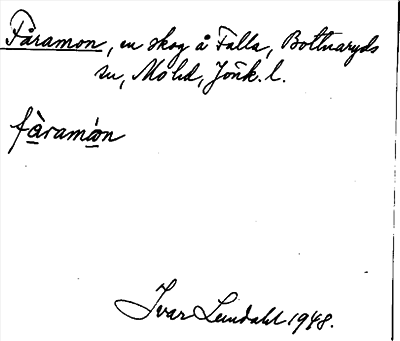 Fåramon, en skog å Falla, Bottnaryds
sn, Mo hd, Jönk. l.
fåramón
Ivar Lundahl 1948.